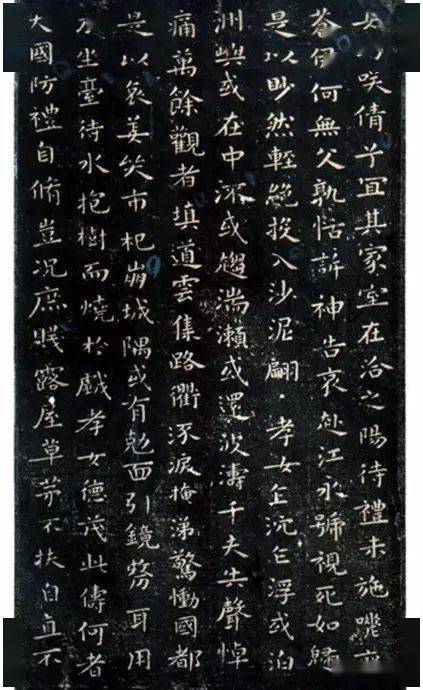 女巧咲倩兮宜其家室在洽之陽待禮未施嗟喪
蒼伊何無父孰怙訴神告哀赴江永號視死如歸
是以眇然輕絕投入沙泥翩〻孝女乍沉乍浮或泊
洲嶼或在中流或趨湍瀨或還波濤千夫失聲悼
痛萬餘觀者填道雲集路衢流淚掩涕驚慟國都
是以哀姜哭市杞崩城隅或有尅面引鏡剺耳用
刀坐臺待水抱樹而燒於戲孝女德茂此儔何者
大國防禮自脩豈況庶賤露屋草茅不扶自直不